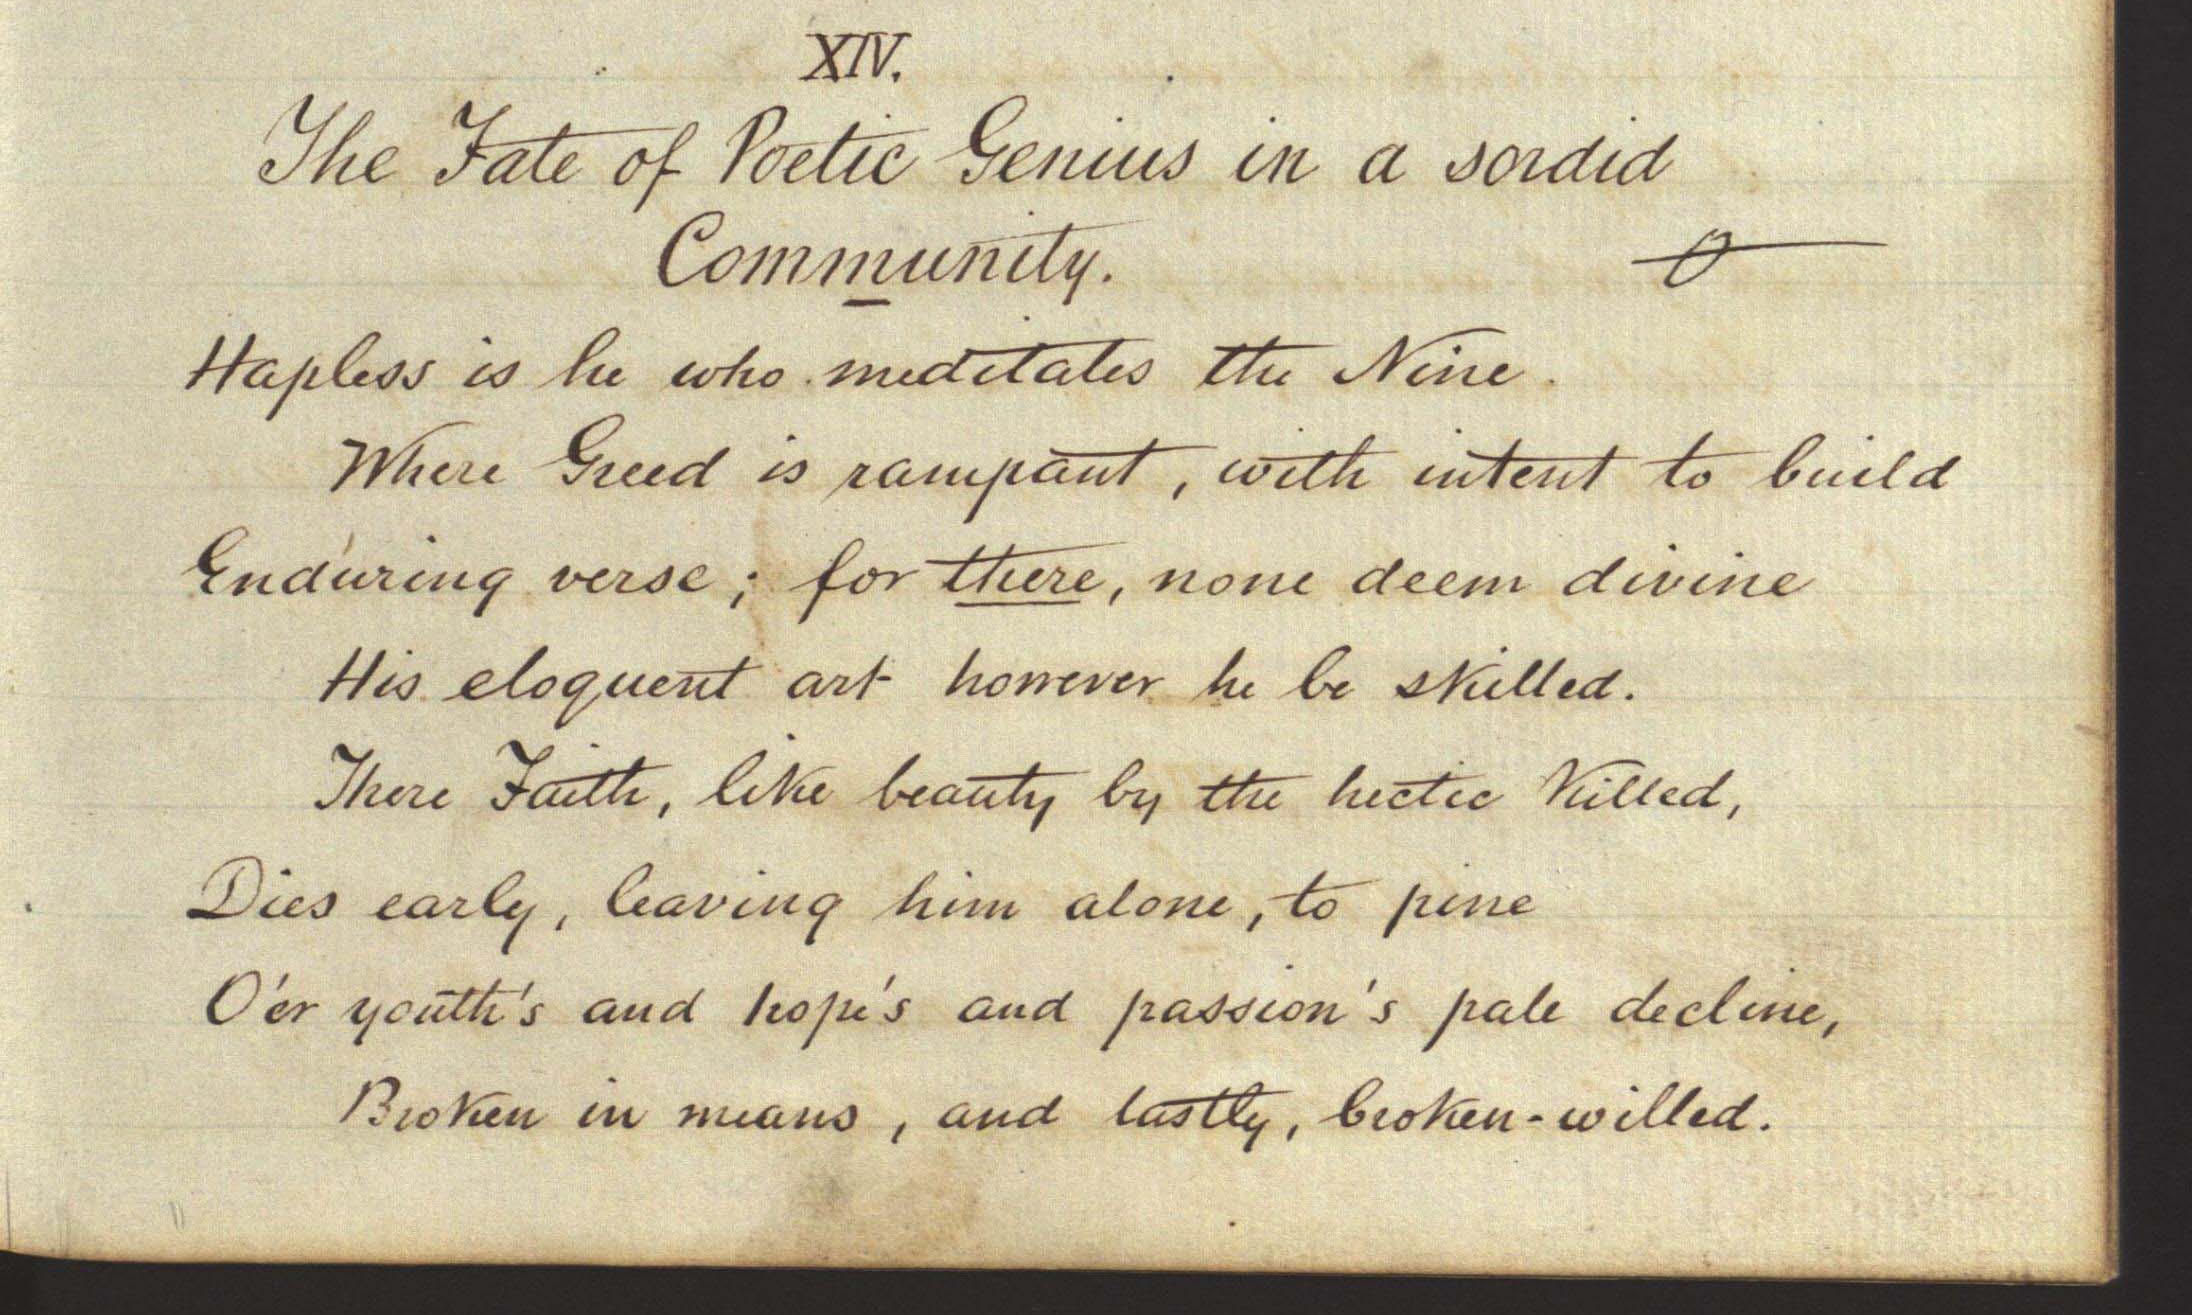 XIV.
The Fate of Poetic Genius in a sordid
Community.
Hapless is he who meditates the Nine.
Where Greed is rampant, with intent to build
Enduring verse; for there, none deem divine
His eloquent art however he be skilled.
There Faith, like beauty by the hectic killed,
Dies early, leaving him alone, to pine
O'er youth's and hope's and passion's pale decline,
Broken in means, and lastly, broken-willed.